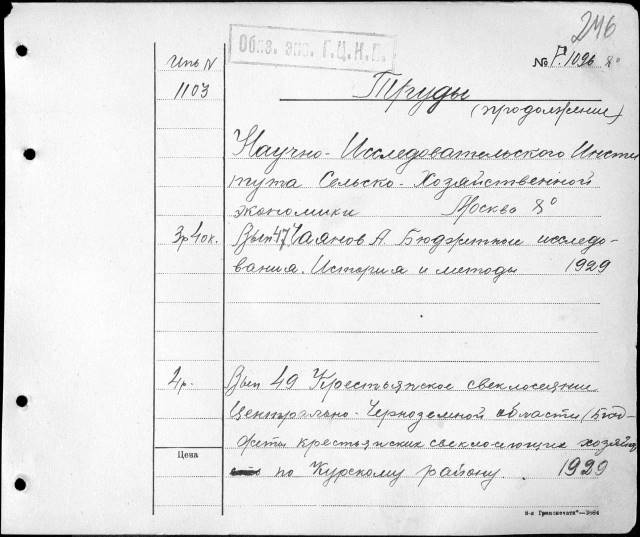 246
Обяз. экз. Г.Ц.К.П.
№ Р. 1096 8°
Инв N
1103
Труды
(продолжение)
Научно-Исследовательского Инсти
тута Сельско-Хозяйственной
экономики Москва 8°
3р 40к. Вып 47 Чаянов А. Бюджетные исследо-
вания. История и методы 1929
4р. Вып 49 Крестьянское свеклосеяние
Центрально-Черноземной области (Бюд-
жеты крестьянских свеклосеющих хозяйств
по Курскому району. 1929
Цена
8-я Гринпечати"—3664